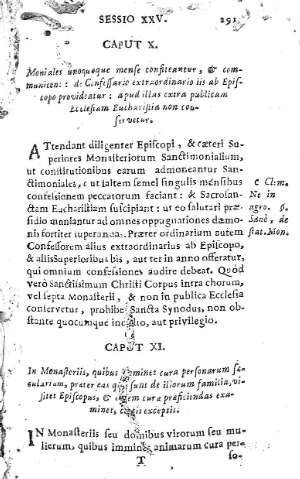 SESSIO XXV. 291
CAPUT X.
Moniales unoquoque mense confiteantur, & com-
municent: de Confessario extraordinario iis ab Epis-
copo provideatur: apud illas extra publicam
Ecclesiam Eucharistia non con-
servetur.
ATtendant diligenter Episcopi, & cæteri Su-
periores Monasteriorum Sanctimonialium,
ut constitutionibus earum admoneantur San-
ctimoniales, ut saltem semel singulis mensibus
confessionem peccatorum faciant: & Sacrosan-
ctam Eucharistiam suscipiant: ut eo salutari præ-
sidio meniantur ad omnes oppugnationes dæmo-
nis fortiter superandas. Præter ordinarium autem
Confessorem alius extraordinarius ab Episcopo,
& aliis Superioribus bis, aut ter in anno offeratur,
qui omnium confessiones audire debeat. Quod
verò sanctissimum Christi Corpus intra chorum,
vel septa Monasterii, & non in publica Ecclesia
conservetur, prohibet Sancta Synodus, non ob-
stante quocumque indulto, aut privilegio.
c Clem.
Ne in
agro. §.
Sanè, de
stat. Mon.
CAPUT XI.
In Monasteriis, quibus imminet cura personarum sæ-
cularium, præter eas quæ sunt de illorum familia, vi-
sitet Episcopus, & idem cura præficiendas exa-
minet, certis exceptis.
IN Monasteriis seu domibus virorum seu mu-
lierum, quibus imminet animarum cura per-
T so-